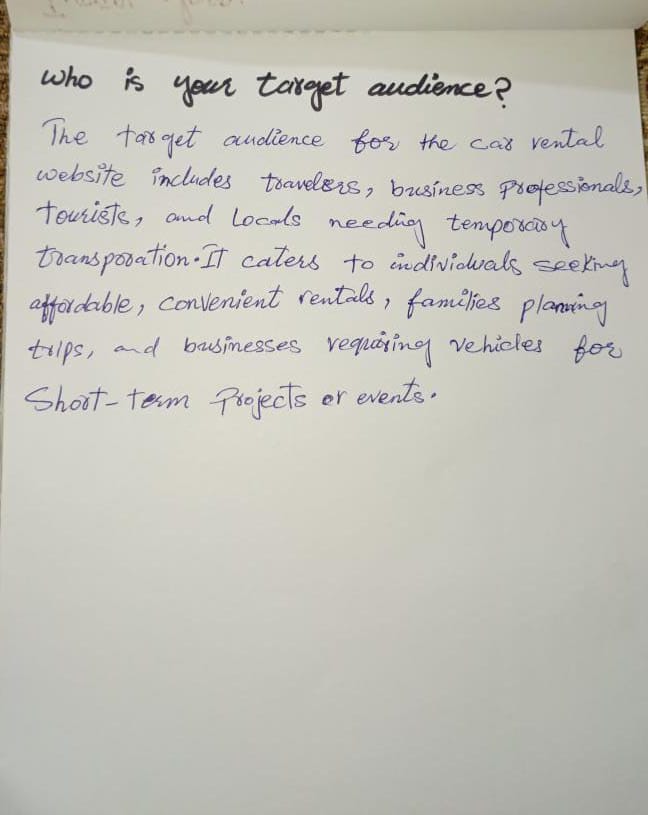 who is your target audience?
The target audience for the car rental
website includes travelers, business professionals,
tourists, and Locals needing temporary
transporation. It caters to individuals seeking
affordable, convenient rentals, families planning
trips, and businesses requiring vehicles for
Short-term Projects or events.